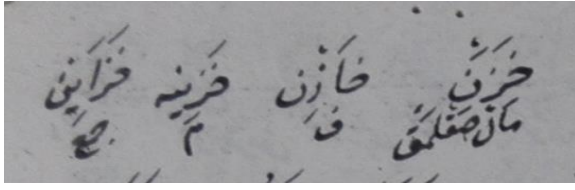 خَزَنَ خَازِن خَزِينه خَزَاين
مال صقلمق ف م جمع